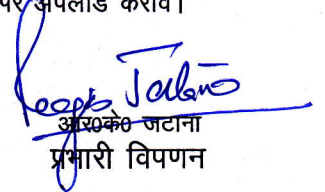 पर अपलोड करावें।
आर०के० जटाना
प्रभारी विपणन